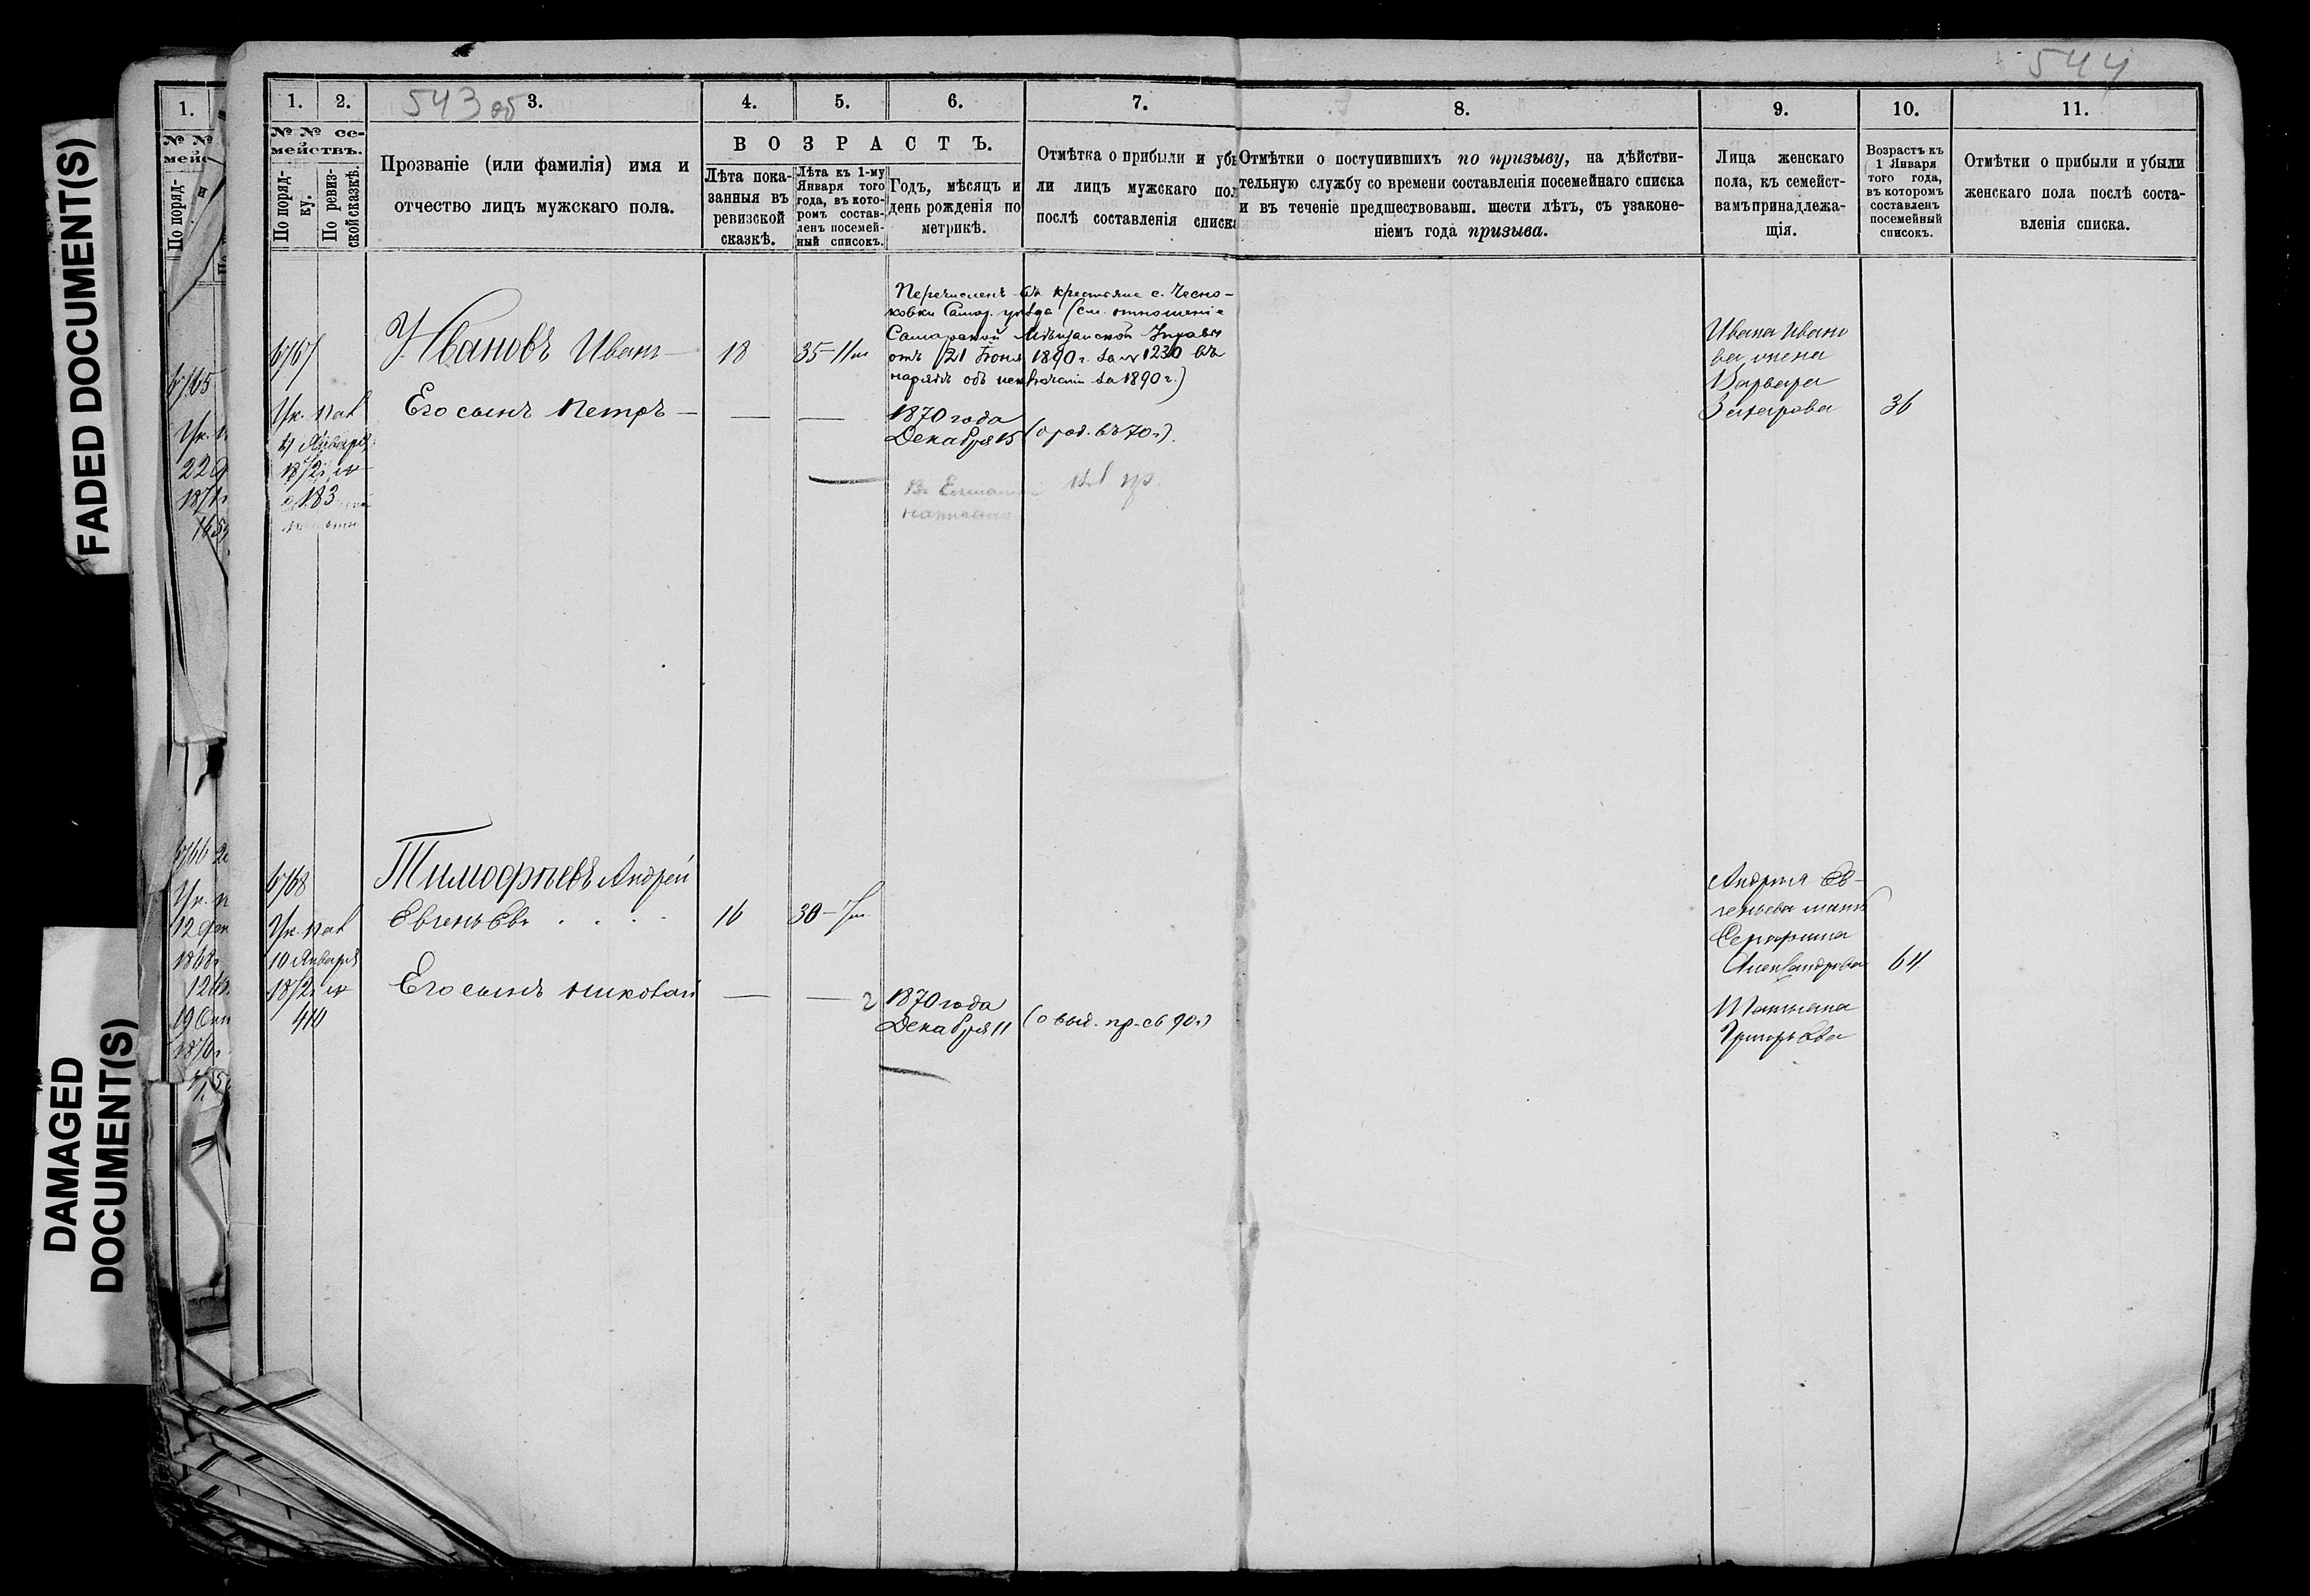 FADED DOCUMENT(S)
DAMAGED
DOCUMENT(S)
543 об
544
1.
№ №
По поряд-
1.
2.
3.
4.
5.
6.
7.
8.
9.
10.
11.
№ № се-
мействъ.
По поряд-
ку.
По ревиз-
ской сказкѣ.
Прозваніе (или фамилія) имя и
отчество лицъ мужскаго пола.
ВОЗРАСТЪ.
Лѣта пока-
занныя въ
ревизской
сказкѣ.
Лѣта къ 1-му
Января того
года, въ кото-
ромъ состав-
ленъ посемей-
ный списокъ.
Годъ, мѣсяцъ и
день рожденія по
метрикѣ.
Отмѣтка о прибыли и убы
ли лицъ мужскаго пол
послѣ составленія списка
Отмѣтки о поступившихъ по призыву, на дѣйстви-
тельную службу со времени составленія посемейнаго списка
и въ теченіе предшествовавш. шести лѣтъ, съ узаконе-
ніемъ года призыва.
Лица женскаго
пола, къ семейст-
вамъ принадлежа-
щія.
Возрастъ къ
1 Января
того года,
въ которомъ
составленъ
посемейный
списокъ.
Отмѣтки о прибыли и убыли
женскаго пола послѣ соста-
вленія списка.
6765
6767
Ивановъ Иванъ
18
35-11м
Перечисленъ въ крестьяне с. Чесно-
ковки Самар. уѣзда (см. отношеніе
Самарской Мѣщанской Управы
отъ 21 Іюня 1890 г. за № 1230 въ
нарядѣ объ исключеніи за 1890 г.)
Ивана Ивано
ва жена
Варвара
Захарова
36
Ук. Пал
4 Января
1872 г. №
183
Его сынъ Петръ
1870 года
Декабря 15
(о род. въ 70 г.)
6768
Тимофѣевъ Андрей
Евгеньевъ
16
30-7м
Ук. Пал
10 Января
1872 г. №
410
Его сынъ Николай
2
1870 года
Декабря 11
(о выд. пр. св 90 г.)
Андрея Ев-
геньева мать
Серафима
Александрова
64
Татьяна
Григорьева